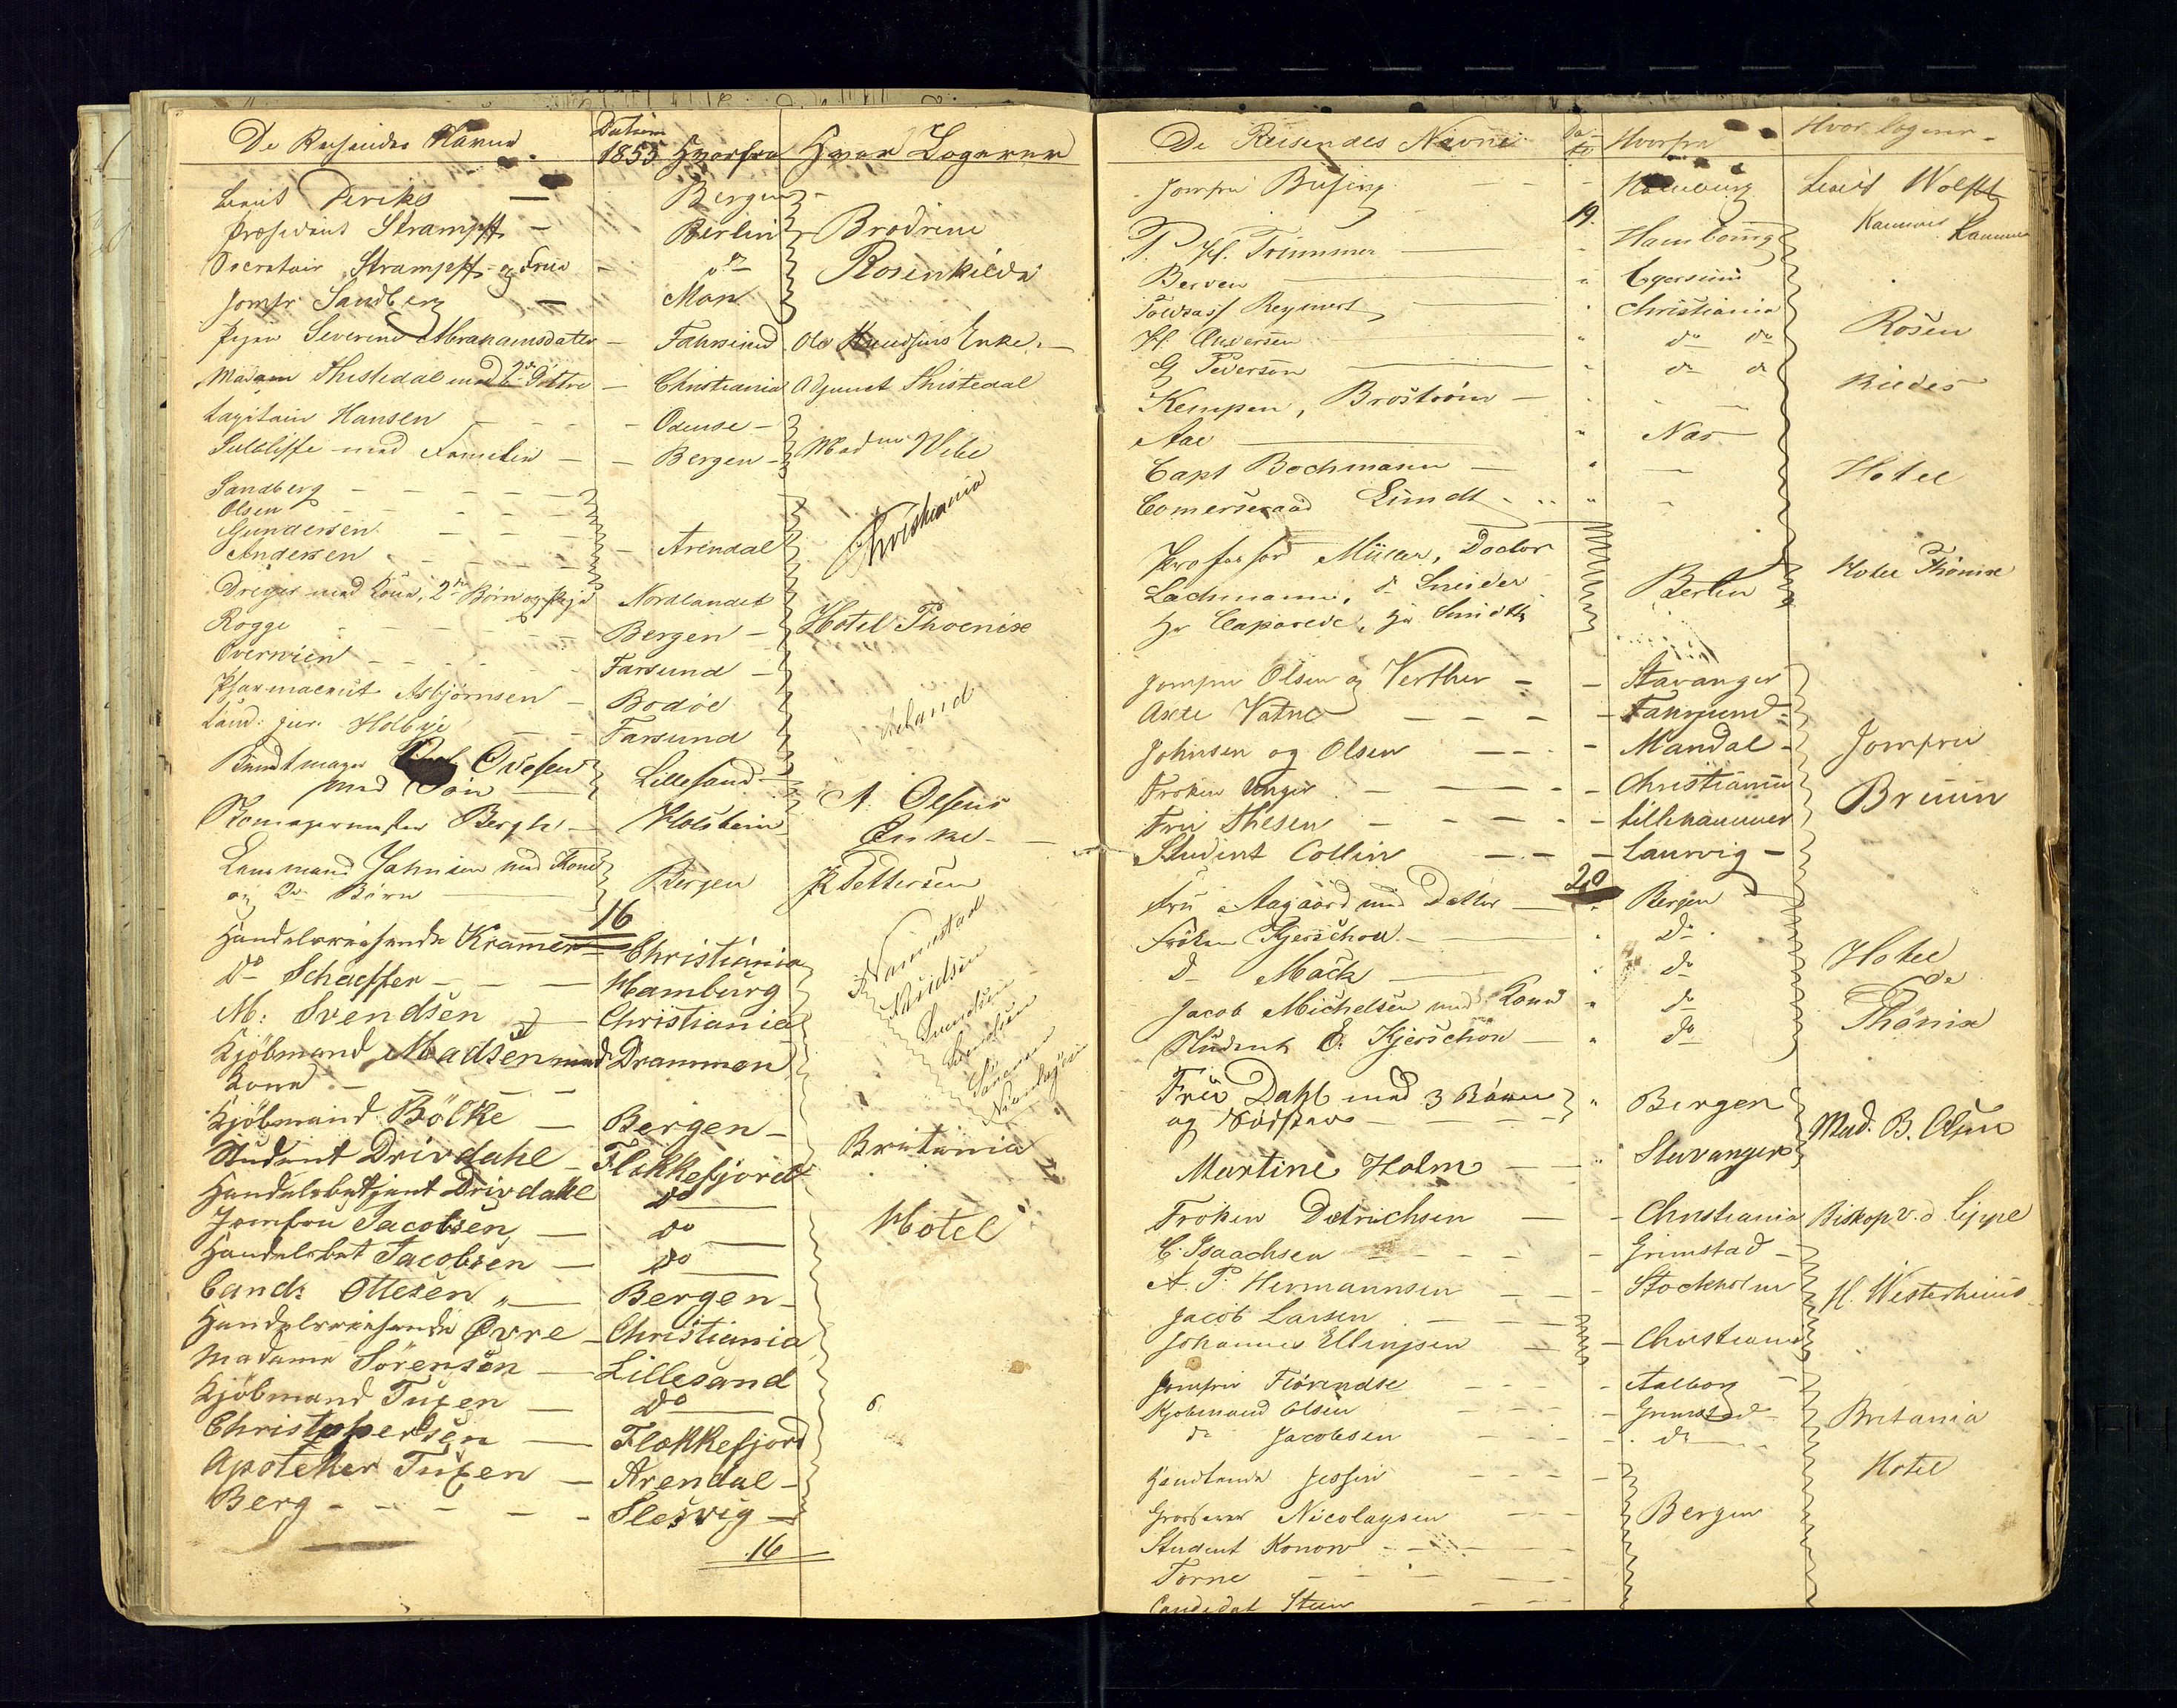 De Reisendes Navne Datum 1855 Hvorfra Hvor Logerer
Lieut Dericks — Bergen
Præsident Strampff — Berlin Brødrene
Secretair Strampff og Frue — do Rosenkilde
Jomfr Sandberg — Mon
Pigen Severine Abrahamsdatter — Fahrsund Ols Knudsens Enke
Madam Thistedal med 2de Døttre — Christiania Adjunct Thistedal
Capitain Hansen Odense
Sutcliffe med Familie — Bergen Madm Wibe
Sandberg
Olsen
Gundersen
Andersen — Arendal Christiania
Dreyer med Kone, 2de Børn og Pige Nordlandet
Rogge Bergen Hotel Phoenix
Overwien Farsund
Pharmaceut Asbjørnsen Bodøe
Cand: jur: Holbye Farsund
Buntmager Ovesen
med Søn Lillesand A. Olsens
Skomagermester Bergh Holstein Enke
Lensmand Jahnsen med Kone
og 2de Børn Bergen P Pettersen
16
Handelsreisende Kramer Christiania
Do Schaeffer Hamburg
M: Svendsen Christiania
Kjöbmand Madsen med Drammen
Kone
Kjöbmand Bölke Bergen
Student Drivdahl Flekkefjord Britania
Handelsbetjent Drivdahl do
Jomfru Jacobsen do Hotel
Handelsbet Jacobsen do
Cand: Ottesen Bergen
Handelsreisende Øvre Christiania
Madame Sörensen Lillesand
Kjöbmand Tuxen do
Christophersen Flekkefjord
Apotheker Tuxen Arendal
Berg Slesvig
16
De Reisendes Navne Dato Hvorfra Hvor logerer
Jomfru Büsing Hamburg Lieut Wolff
19.
P. H. Trummer Hamborg
Berven Egersund
Toldass Reymert Christiania Rosen
H Andersen do do
G Pedersen do do
Kempen, Broström Kildes
Aae Nas
Capt Bochmann — Hotel
Comerseraad Lundt
Professor Müller, Doctor Hotel Phönix
Lachmann, do Sneider Berlin
Hr Claparede, Hr Smidth
Jomfru Olsen og Verther Stavanger
Axel Vatne Fahrsund
Johnsen og Olsen Mandal Jomfru
Frøken Unger Christiania Bruun
Fru Thesen Lillehammer
Student Collin Laurvig
20
Fru Aagaard med Datter Bergen
Fröken Kjerschou do
do Mack do Hotel
Jacob Michelsen med Kone do de
Student E. Kjerschou do Phönix
Frü Dahl med 3 Børn Bergen
og Mad. B. Olsen
Martine Holm Stavanger
Frøken Detrichsen Christiania Biskop v. d. Lippe
C. Isaachsen Grimstad
A. P. Hermannsen Stockholm H. Westerhuus
Jacob Larsen
Johannes Ellingsen Christiania
Jomfru Flörendse Aalborg
Kjøbmand Olsen Grimstad Britania
do Jacobsen do
Handlende Jessen Hotel
Grosserer Nicolaysen Bergen
Student Konow
Torne
Candidat Steen